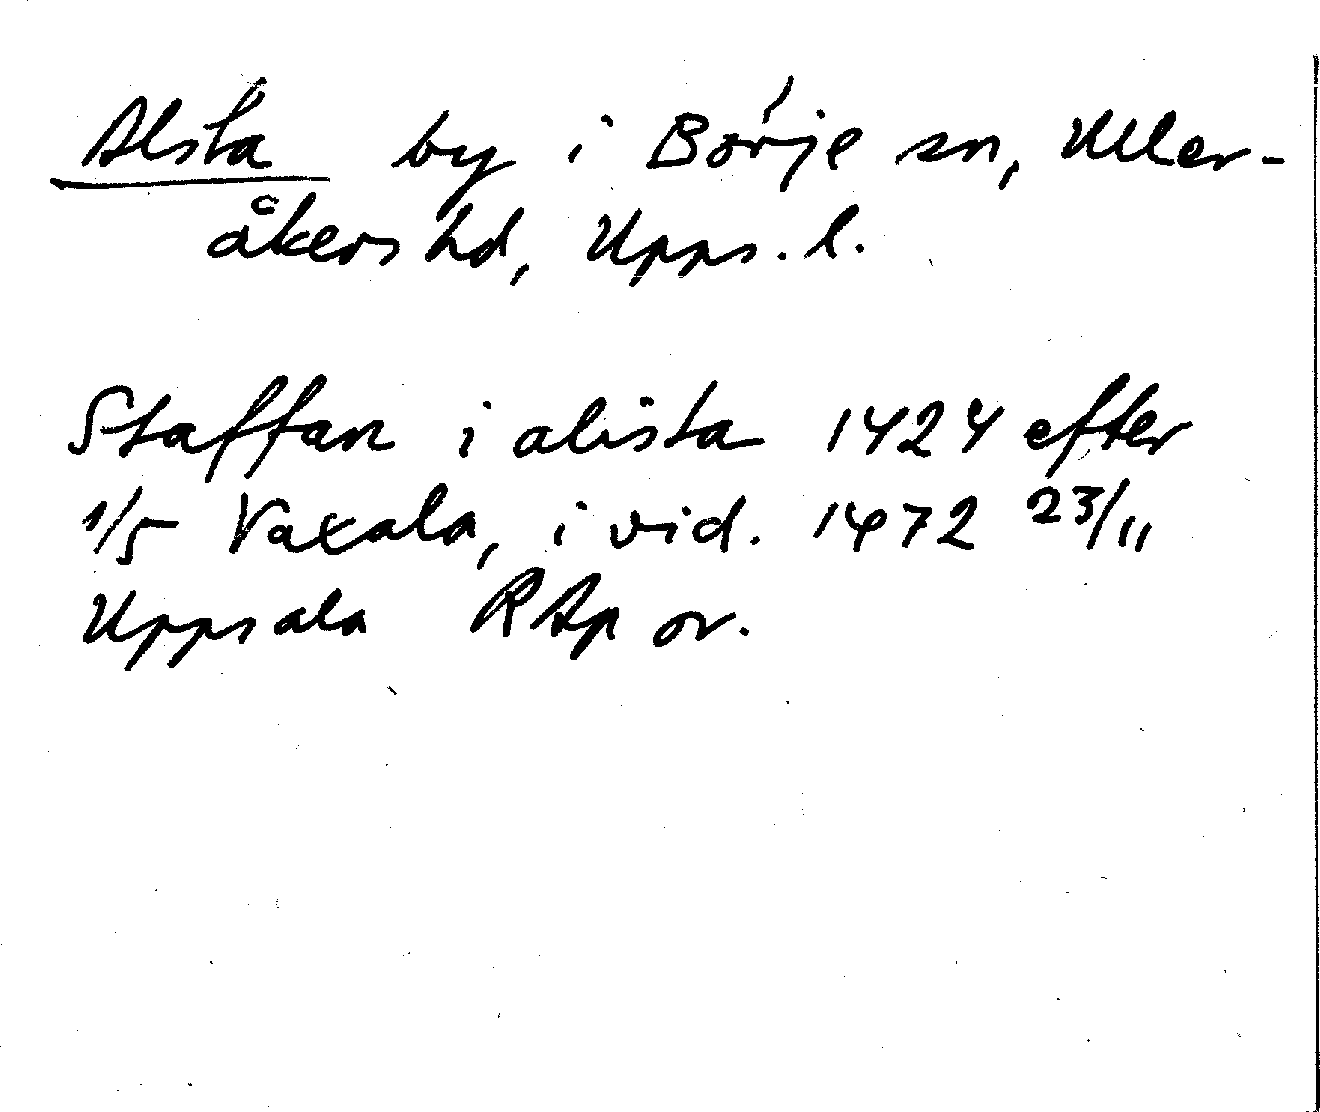 Alsta by i Börje sn, Uller-
åkers hd, Upps. l.
Staffan i alista 1424 efter
1/5 Vaxala, i vid. 1472 23/11
Uppsala RAp or.